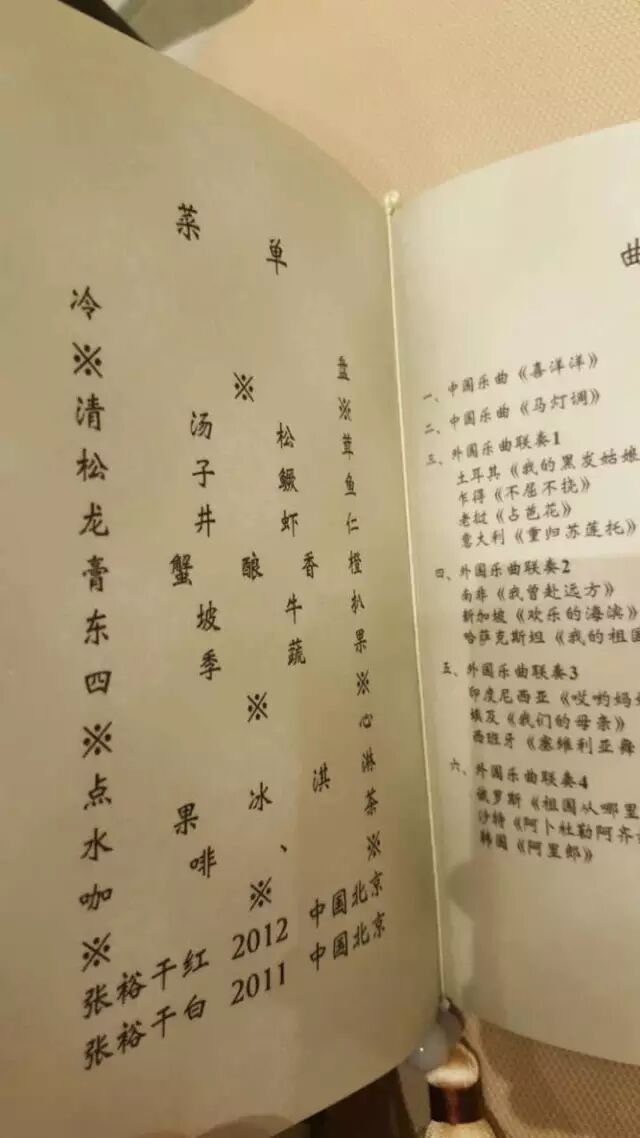 菜 单
冷 盘
※ ※ ※
清 汤 松 茸
松 子 鳜 鱼
龙 井 虾 仁
膏 蟹 酿 香 橙
东 坡 牛 扒
四 季 蔬 果
※ ※ ※
点 心
水 果 冰 淇 淋
咖 啡 、 茶
※ ※ ※
张裕干红 2012 中国北京
张裕干白 2011 中国北京
曲
一、中国乐曲《喜洋洋》
二、中国乐曲《马灯调》
三、外国乐曲联奏1
土耳其《我的黑发姑娘
乍得《不屈不挠》
老挝《占芭花》
意大利《重归苏莲托》
四、外国乐曲联奏2
南非《我曾赴远方》
新加坡《欢乐的海滨》
哈萨克斯坦《我的祖国
五、外国乐曲联奏3
印度尼西亚《哎哟妈妈
埃及《我们的母亲》
西班牙《塞维利亚舞
六、外国乐曲联奏4
俄罗斯《祖国从哪里
沙特《阿卜杜勒阿齐
韩国《阿里郎》